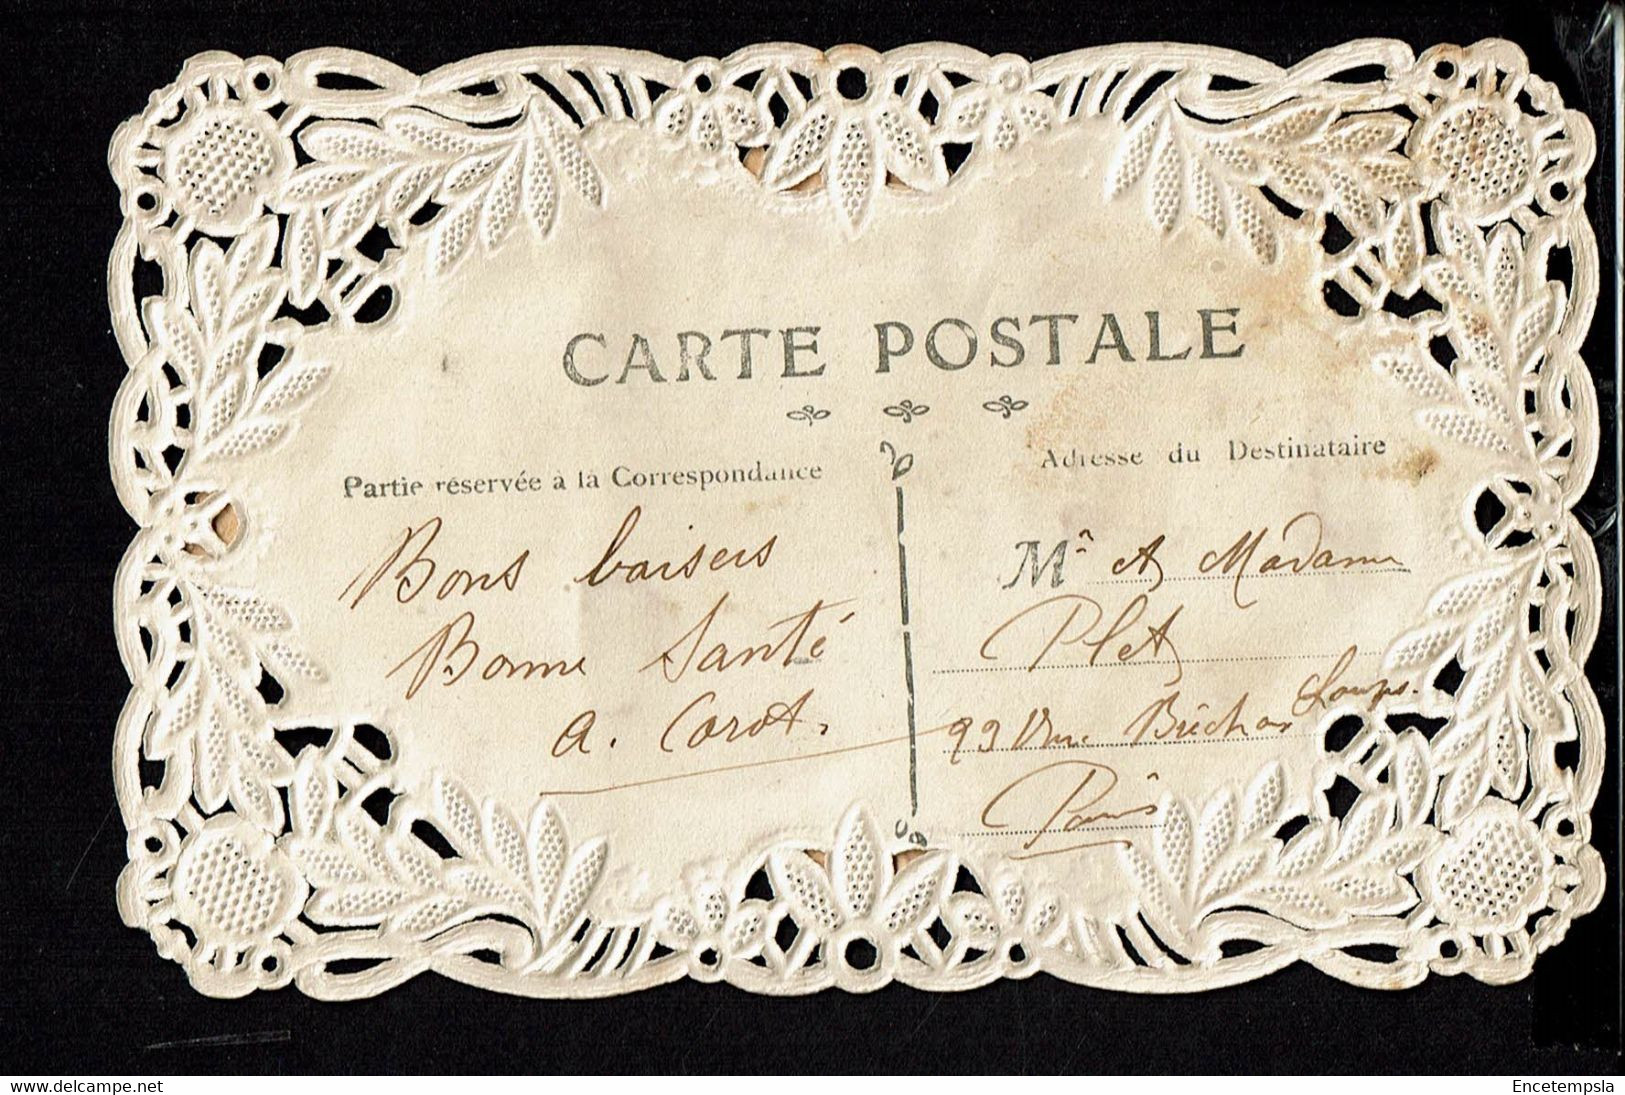 CARTE POSTALE
Partie réservée à la Correspondance
Adresse du Destinataire
Bons baisers
Bonne Santé
A. Corot.
Mr et Madame
Plet
99 Rue
Paris
Encetempsla